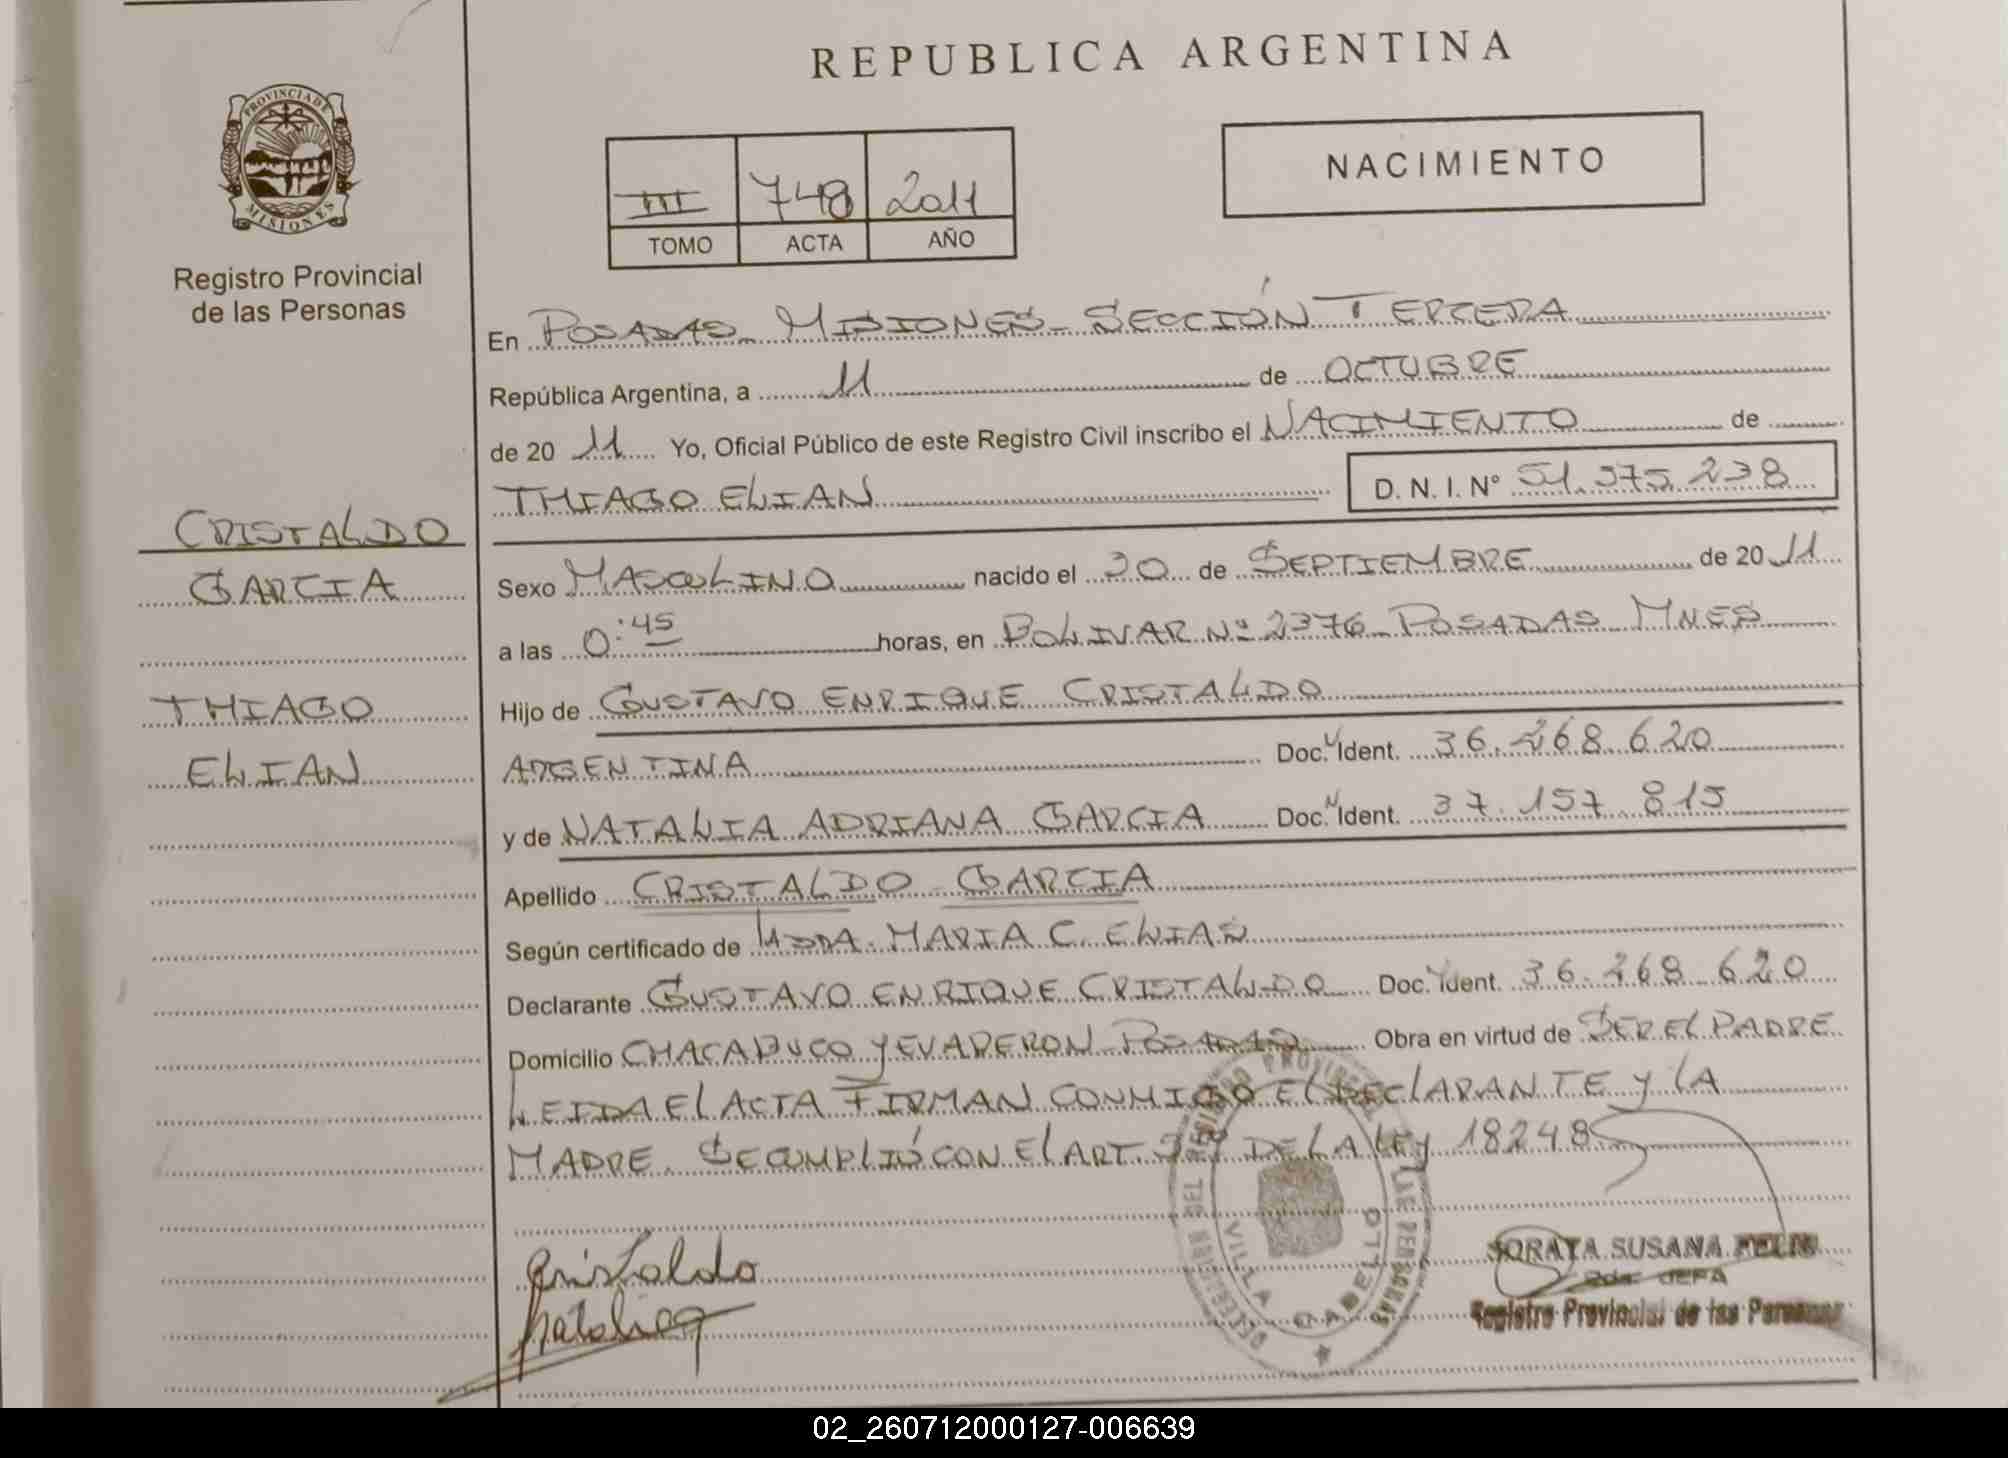 REPUBLICA ARGENTINA
PROVINCIA DE MISIONES
Registro Provincial
de las Personas
III 748 2011
TOMO ACTA AÑO
NACIMIENTO
En POSADAS - MISIONES - SECCIÓN TERCERA
República Argentina, a 11 de OCTUBRE
de 20 11 Yo, Oficial Público de este Registro Civil inscribo el NACIMIENTO de
THIAGO ELIAN D. N. I. Nº 51.375.238
CRISTALDO
GARCIA
THIAGO
ELIAN
Sexo MASCULINO nacido el 30 de SEPTIEMBRE de 20 11
a las 0:45 horas, en BOLIVAR Nº 2376 - POSADAS - MNES
Hijo de GUSTAVO ENRIQUE CRISTALDO
ARGENTINA Doc. Ident. 36.268.620
y de NATALIA ADRIANA GARCIA Doc. Ident. 37.157.815
Apellido CRISTALDO - GARCIA
Según certificado de MARIA C. ELIAS
Declarante GUSTAVO ENRIQUE CRISTALDO Doc. Ident. 36.268.620
Domicilio CHACABUCO Y EVA PERON - POSADAS Obra en virtud de SER EL PADRE
LEIDA EL ACTA FIRMAN CONMIGO EL DECLARANTE Y LA
MADRE. SE CUMPLIÓ CON EL ART. DE LA LEY 18248
Cristaldo
Natalia
VILLA CABELLO
SORAYA SUSANA
2da. JEFA
Registro Provincial de las Personas
02_260712000127-006639